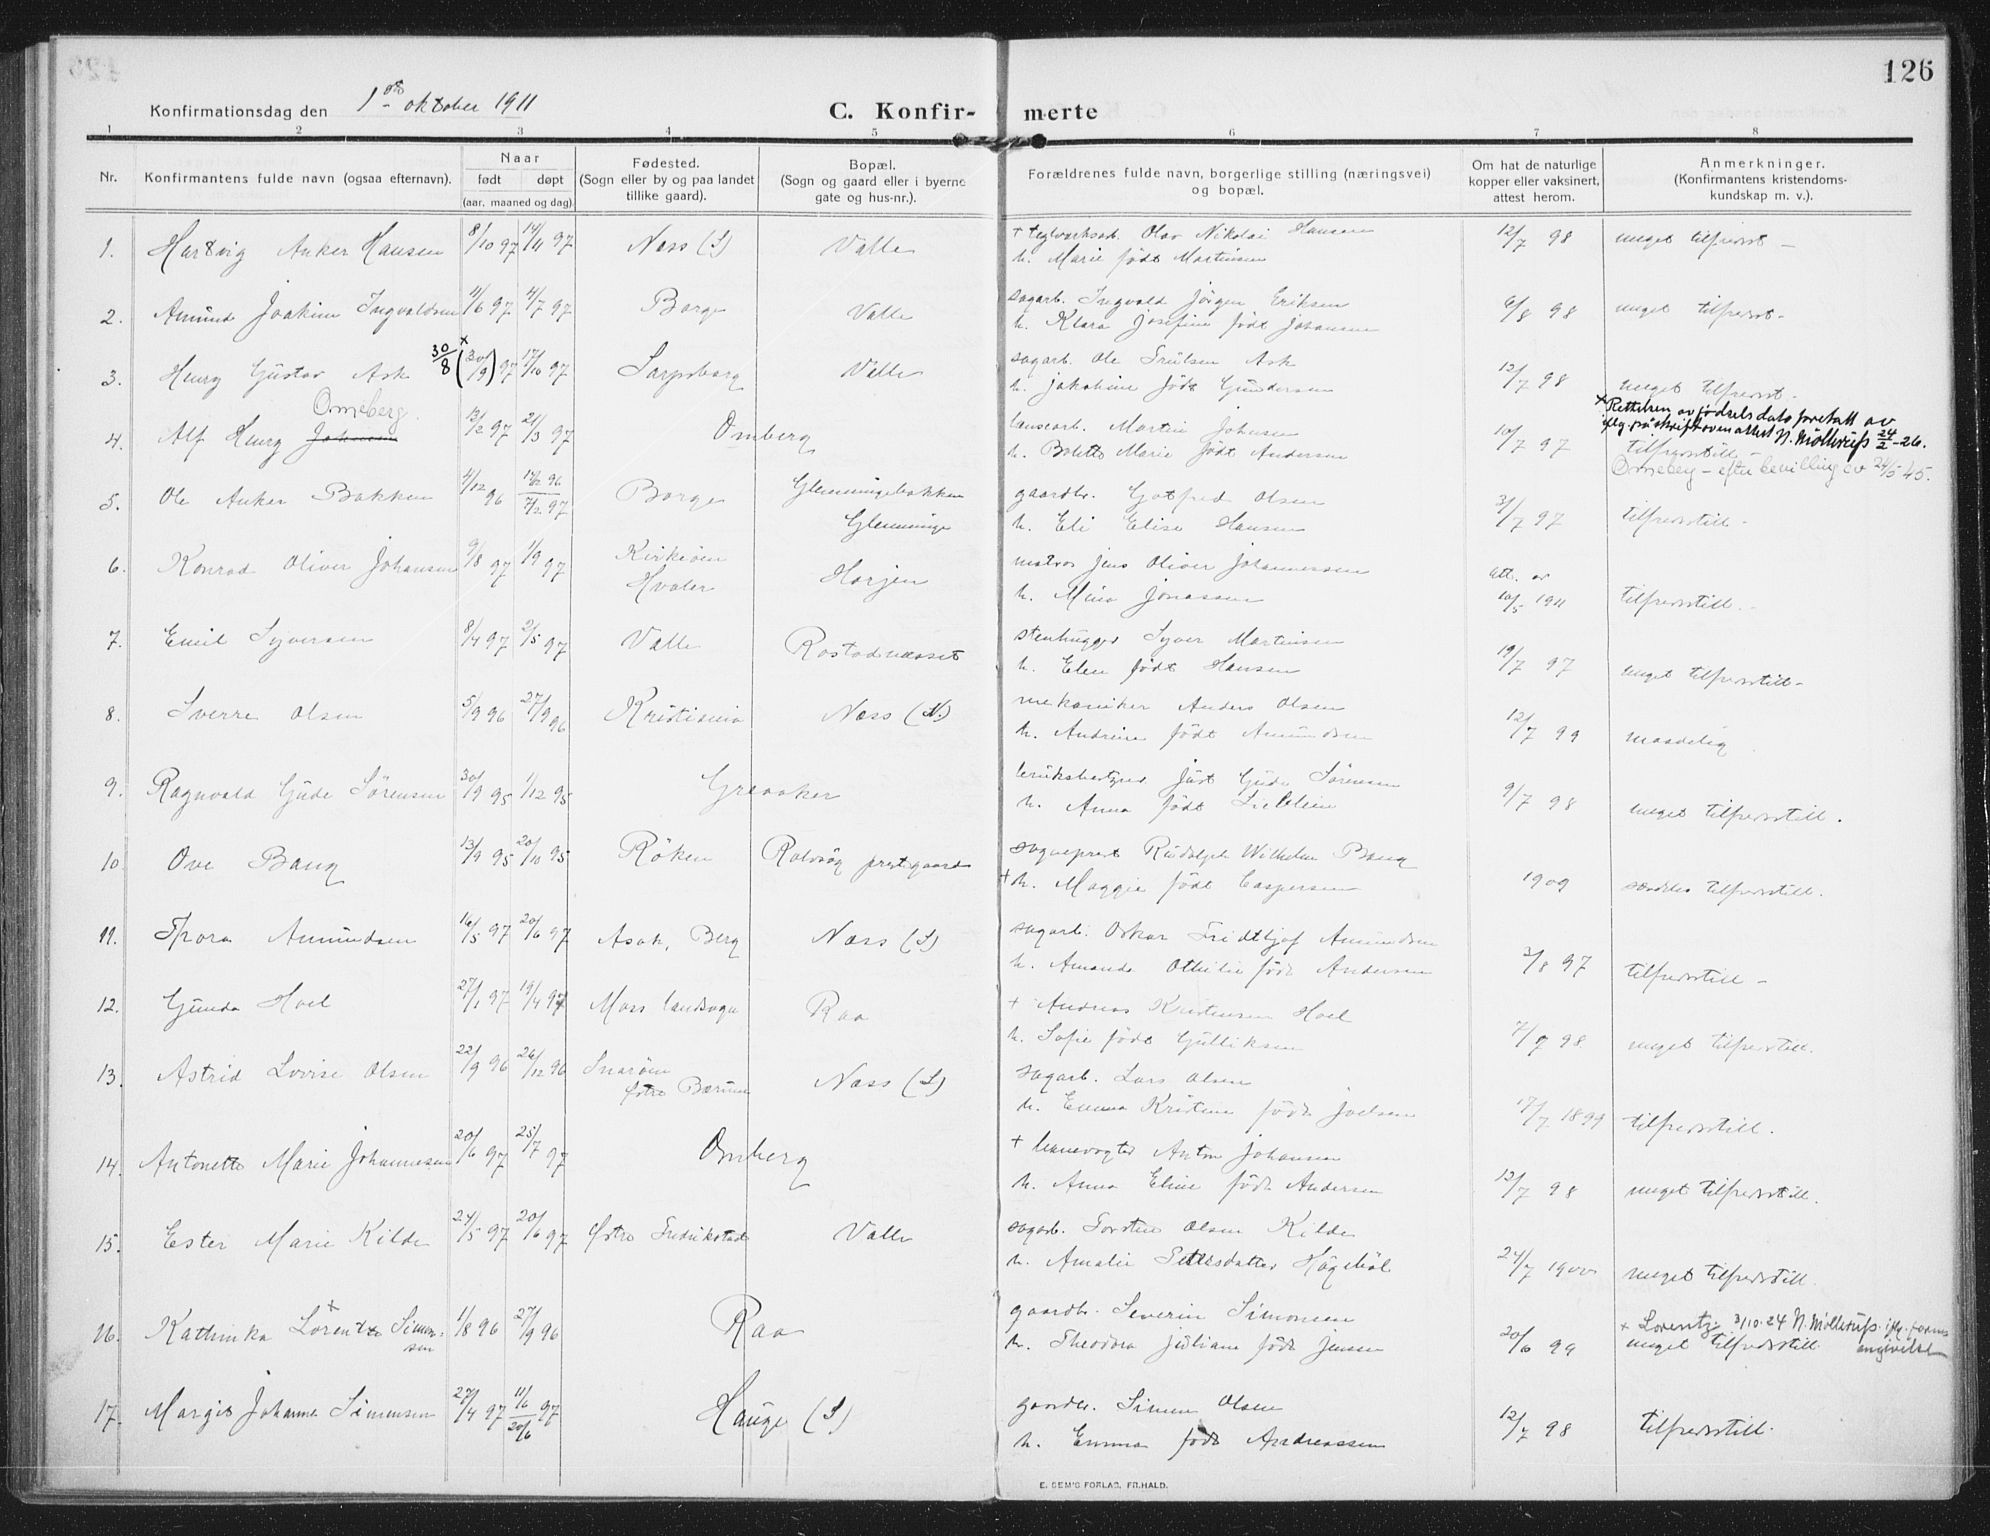 126
Konfirmationsdag den 1ste oktober 1911
C. Konfirmerte
1 2 3 4 5 6 7 8
Nr.
Konfirmantens fulde navn (ogsaa efternavn).
Naar
født døpt
(aar, maaned og dag)
Fødested.
(Sogn eller by og paa landet
tillike gaard).
Bopæl.
(Sogn og gaard eller i byerne
gate og hus-nr.).
Forældrenes fulde navn, borgerlige stilling (næringsvei)
og bopæl.
Om hat de naturlige
kopper eller vaksinert,
attest herom.
Anmerkninger.
(Konfirmantens kristendoms-
kundskap m. v.).
1. Hartvig Anker Hansen 8/10 97 14/11 97 Næss (S) Valle + teglverksarb. Olav Nikolai Hansen 12/7 98 meget tilfredsst –
h. Marie født Martinsen
2. Amund Joakim Ingvaldsen 11/6 97 4/7 97 Borge Valle sagarb. Ingvald Jörgen Eriksen 6/8 98 meget tilfredsst.
h. Klara Josefine født Johansen
3. Henry Gustav Ask 30/8 x (30/9) 97 17/10 97 Sarpsborg Valle sagarb. Ole Trulsen Ask 12/7 98 meget tilfredsst.
h. Jakobine født Gundersen
x Rettelsen av fødselsdato foretatt av
iflg. prästskriftsoven attest N. Möllerüß 24/2 - 26.
4. Alf Henry Johansen Ørneberg. 13/2 97 21/3 97 Omberg Martin Johnsen 10/7 97 tilfredsstill –
h. Bolette Marie født Andersen Ørneberg – efter bevilling av 24/5 45.
5. Ole Anker Bakken 4/12 96 96 7/2 97 Borge Glemmingebakken gaardbr. Gotfred Olsen 31/7 97 tilfredsstill –
Glemminge h. Eli Elise Hansen
6. Konrad Oliver Johansen 9/8 97 1/9 97 Kirkeöen Hvaler Horgen matros Jens Oliver Johannessen att. av 10/5 1911 tilfredsstill. –
h. Mina Jonassen
7. Emil Syversen 8/4 97 2/5 97 Valle Rostadnæsset stenhugger Syver Martinsen 19/7 97 meget tilfredsstill –
h. Elen født Hansen
8. Sverre Olsen 5/9 96 27/9 96 Kristiania Næss (N.) mekaniker Anders Olsen 12/7 99 maadelig
h. Andrine født Amundsen
9. Ragnvald Gude Sörensen 30/9 95 1/12 95 Greaaker bruksbestyrer Just Gude Sörensen 9/7 98 meget tilfredsstill.
h. Anna født
10. Ove Bang 13/9 95 20/10 95 Röken Rolvsöy prestegaard sogneprest Rudolph Wilhelm Bang 1909 særdeles tilfredsstill.
+ h. Maggie født Caspersen
11. Thora Amundsen 16/5 97 20/6 97 Asak, Berg Næss (S) sagarb. Oskar Fridtjof Amundsen 3/8 97 tilfredsstill –
h. Amanda Othilie født Andersen
12. Gunda Hoel 27/1 97 19/4 97 Moss landsogn Raa + Andreas Kristensen Hoel 7/9 98 meget tilfredsstill.
h. Sofie født Gulliksen
13. Astrid Lovise Olsen 22/9 96 26/12 96 Snaröen Østre Bærum Næss (S) sagarb. Lars Olsen 17/7 1899 tilfredsstill.
h. Emma Kristine født Joelsen
14. Antonette Marie Johannesen 20/6 97 25/7 97 Omberg + lensevogter Anton Johansen 12/7 98 meget tilfredsstill.
h. Anna Eline født Andersen
15. Ester Marie Kilde 24/5 97 20/6 97 Østre Fredrikstad Valle sagarb. Torsten Olsen Kilde 24/7 1900 meget tilfredsstill.
h. Amalie Pettersdatter Högeböl
16. Kathinka Lorentze x Simonsen 1/8 96 27/9 96 Raa gaardbr. Severin Simonsen 20/6 99 meget tilfredsstill.
h. Theodora Juliane født Jensen
x Lorentz 3/10.24 N. Möllerüß. iflg. navneangivelse
17. Margit Johanne Simensen 27/4 97 11/6 97 20/6 Hauge (S) gaardbr. Simen Olsen 12/7 98 tilfredsstill.
h. Emma født Andreassen
E. SEM'S FORLAG, FR.HALD.